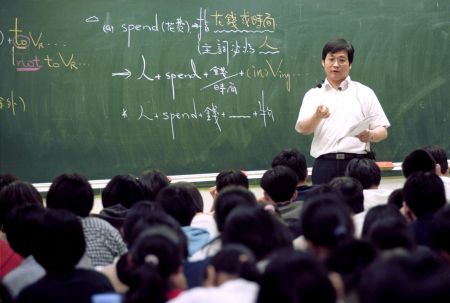 to VR...
not to VR...
外)
△ (a) spend (花費) → 花錢或時間
主詞必為人
⇒ 人 + spend + 錢/時間 + (in) Ving...
* 人 + spend + 錢 + ...... +